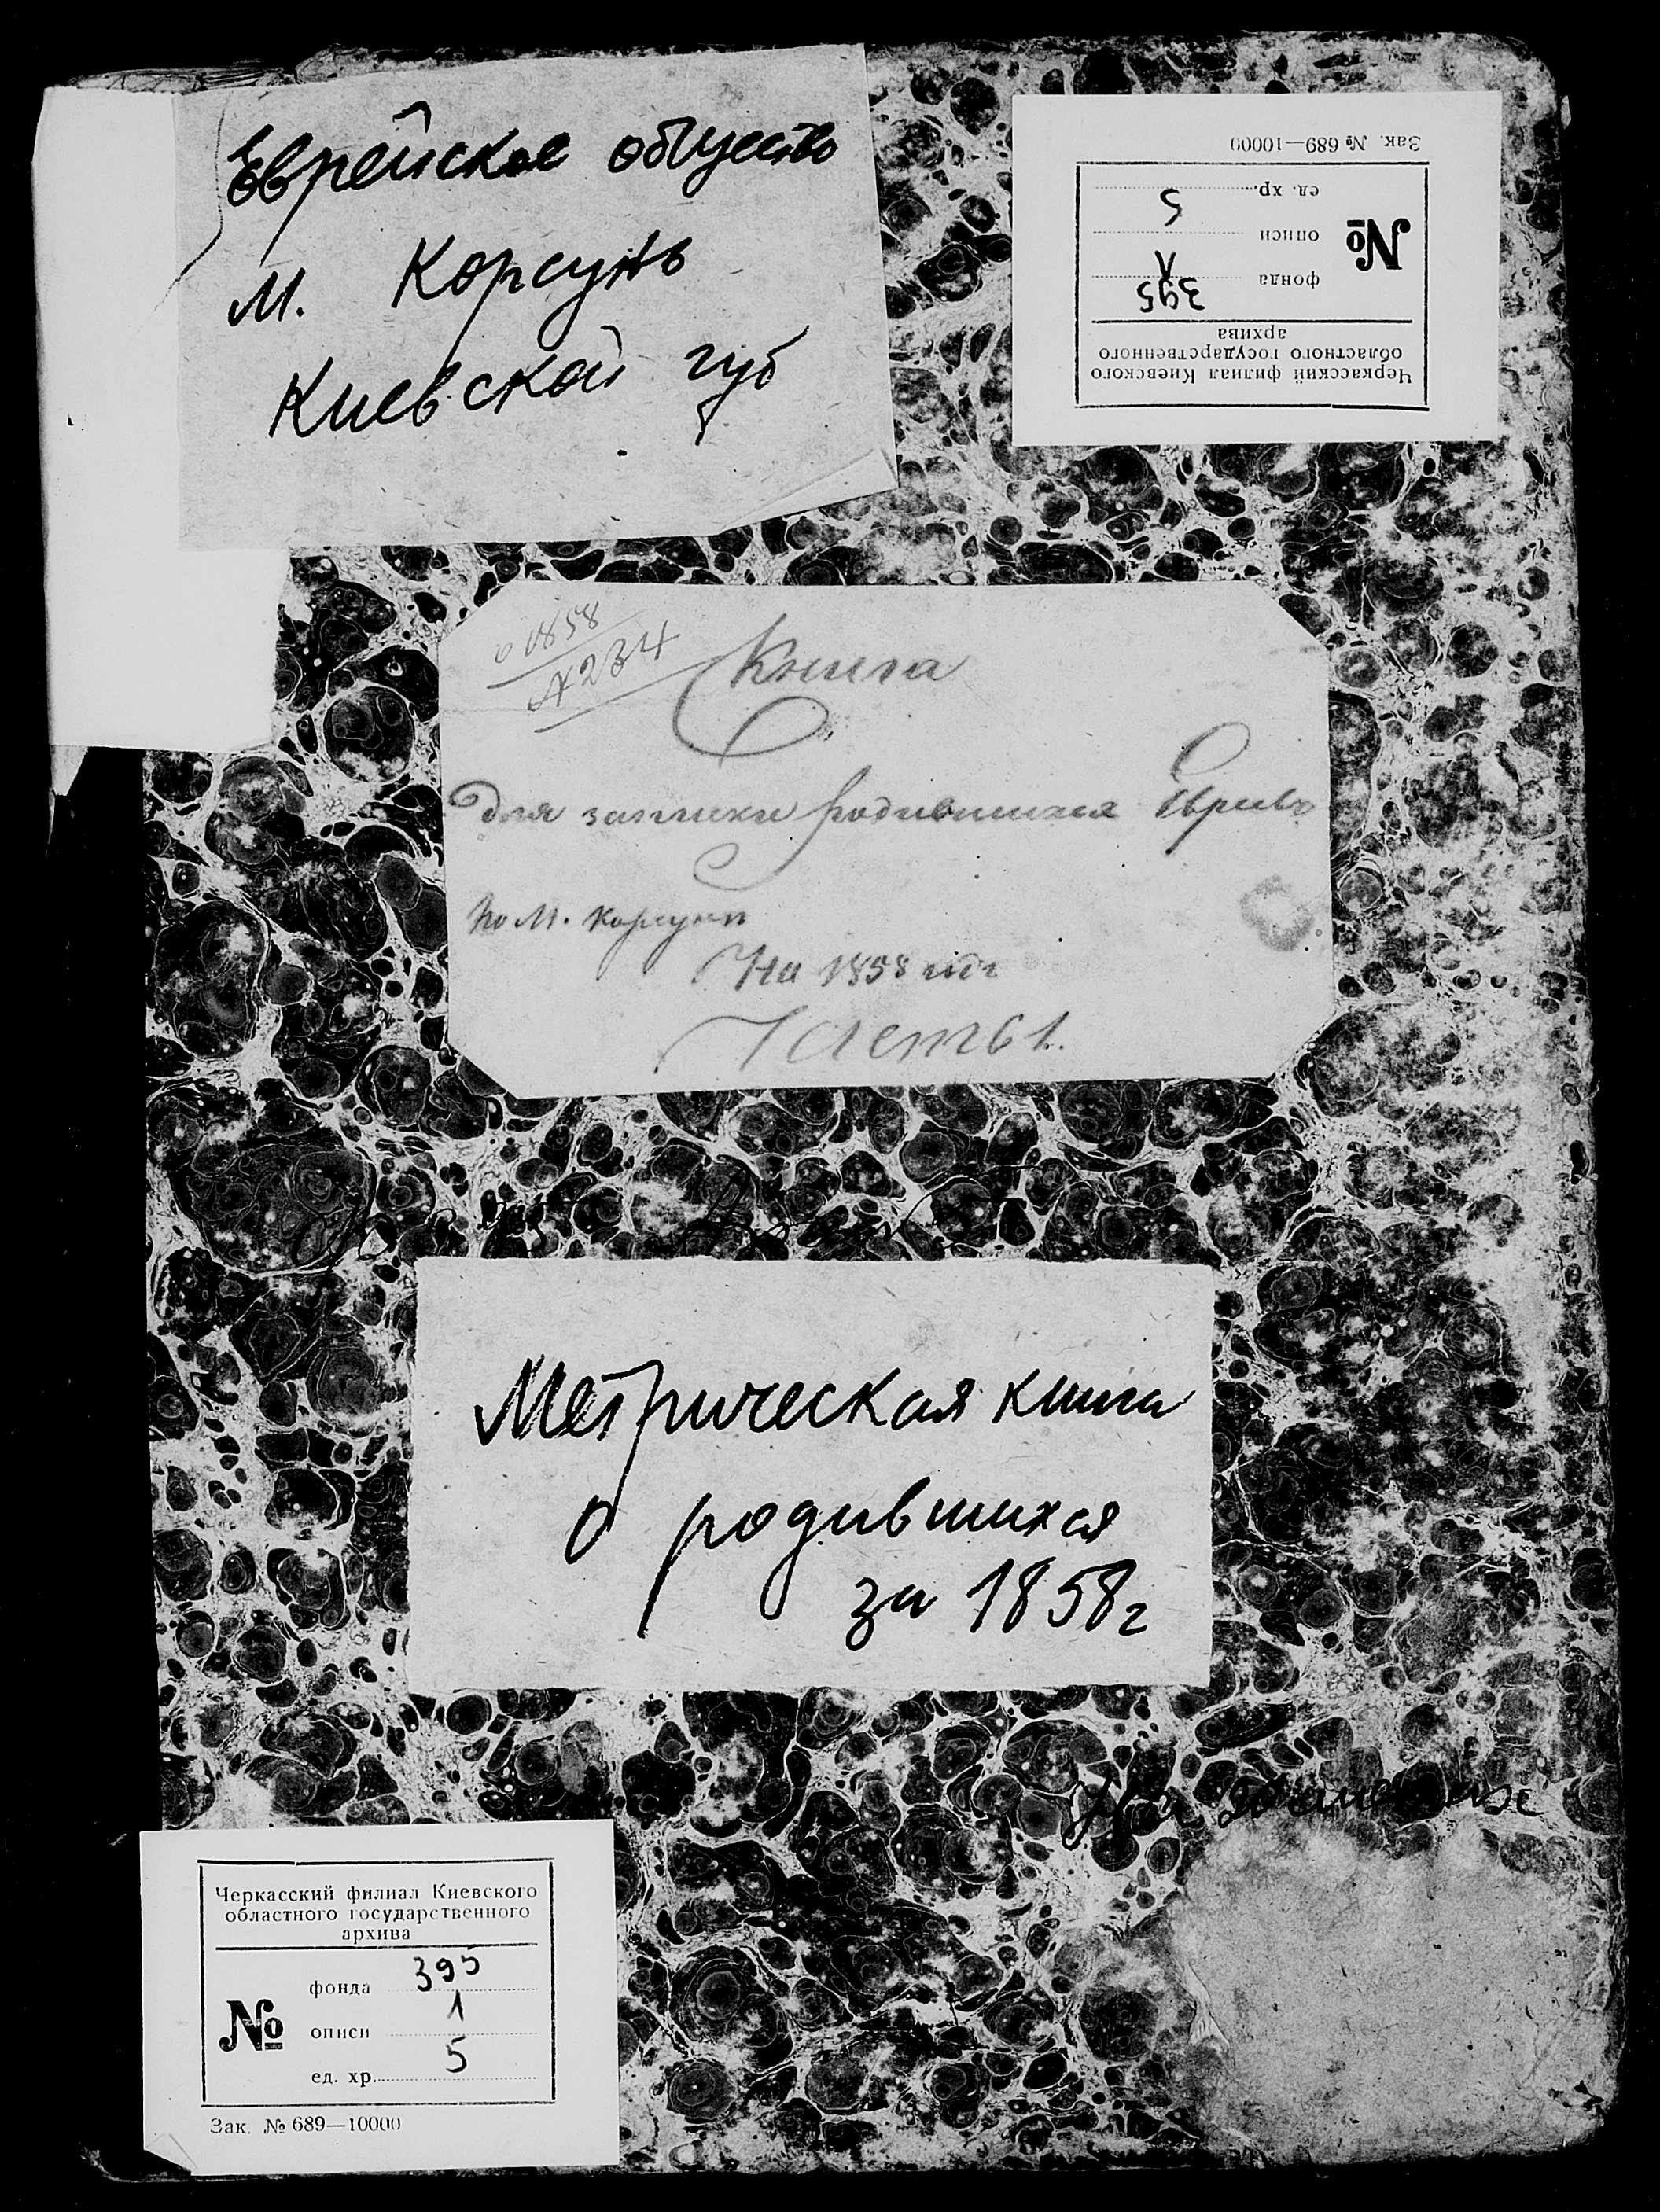 Еврейское общество
м. Корсунь
Киевской губ
Зак. № 689—10000
Черкасский филиал Киевского
областного государственного
архива
№
фонда 395
описи 1
ед. хр. 5
1858
№ 234
Книга
для записки родившихся Евреевъ
по М. Корсуни
На 1858 годъ
Часть 1.
Метрическая книга
о родившихся
за 1858г
На
Черкасский филиал Киевского
областного государственного
архива
№
фонда 395
описи 1
ед. хр. 5
Зак. № 689—10000